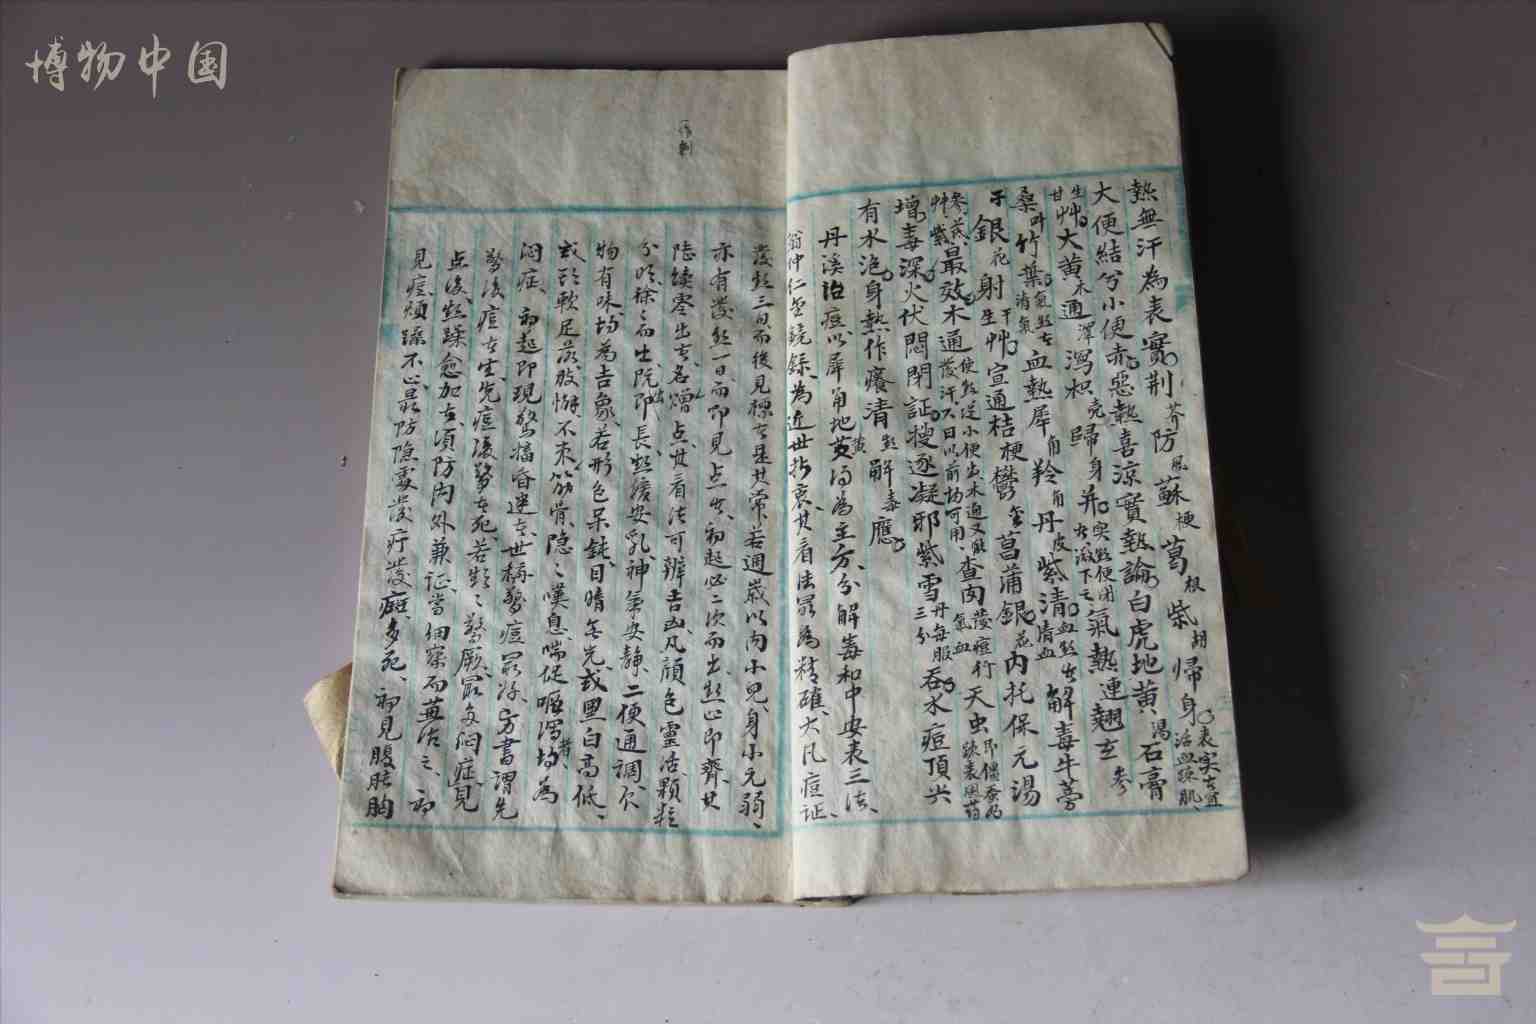 博物中国
熱無汗為表實荆芥防風蘇梗葛根柴胡歸身表实者宜活血疎肌
大便結兮小便赤惡熱喜涼實熱論白虎地黄湯石膏
生甘艸大黄木通澤瀉枳壳歸身氣熱連翹玄參
桑叶竹葉氣熱者清氣血熱犀角羚角丹皮紫清血熱者清血解毒牛蒡
子銀花射干生艸宣通桔梗鬱金菖蒲銀花内托保元湯
參芪艸紫最效木通使熱從小便出木通又能發汗六日以前均可用查肉發痘行氣血天虫即僵蚕為疎表風药
增毒深火伏悶閉証搜逐凝邪紫雪丹每服三分吞水痘頂尖
有水泡身熱作癢清熱解毒應
丹溪治痘以犀角地黄湯為主方分解毒和中安表三法
翁仲仁金鏡録為近世指衷其看法最為精確大凡痘证
發熱三日而後見標者是其常若週歲以内小兒身小元弱
亦有發熱一日而即見点者初起必二次而出熱止即齊其
陸續零出者名熷点其看法可辨吉凶凡顔色靈活顆粒
分明徐徐而出既出即長熱緩安乳神氣安静二便通調欠
物有味均為吉象若形色呆鈍目睛無光或黑白高低
或頭軟足戾肢懈不束筋骨隐隐嘆息喘促嘔瀉者均為
悶症初起即現驚搐昏迷者世稱驚痘最險方書謂先
驚後痘者生先痘後驚者死若頻頻驚厥最多悶症見
点後熱躁愈加者須防内外兼証當細察而並治之初
見痘煩躁不止最防隐處發疔發癍多死初見腹脹胸
一作刺